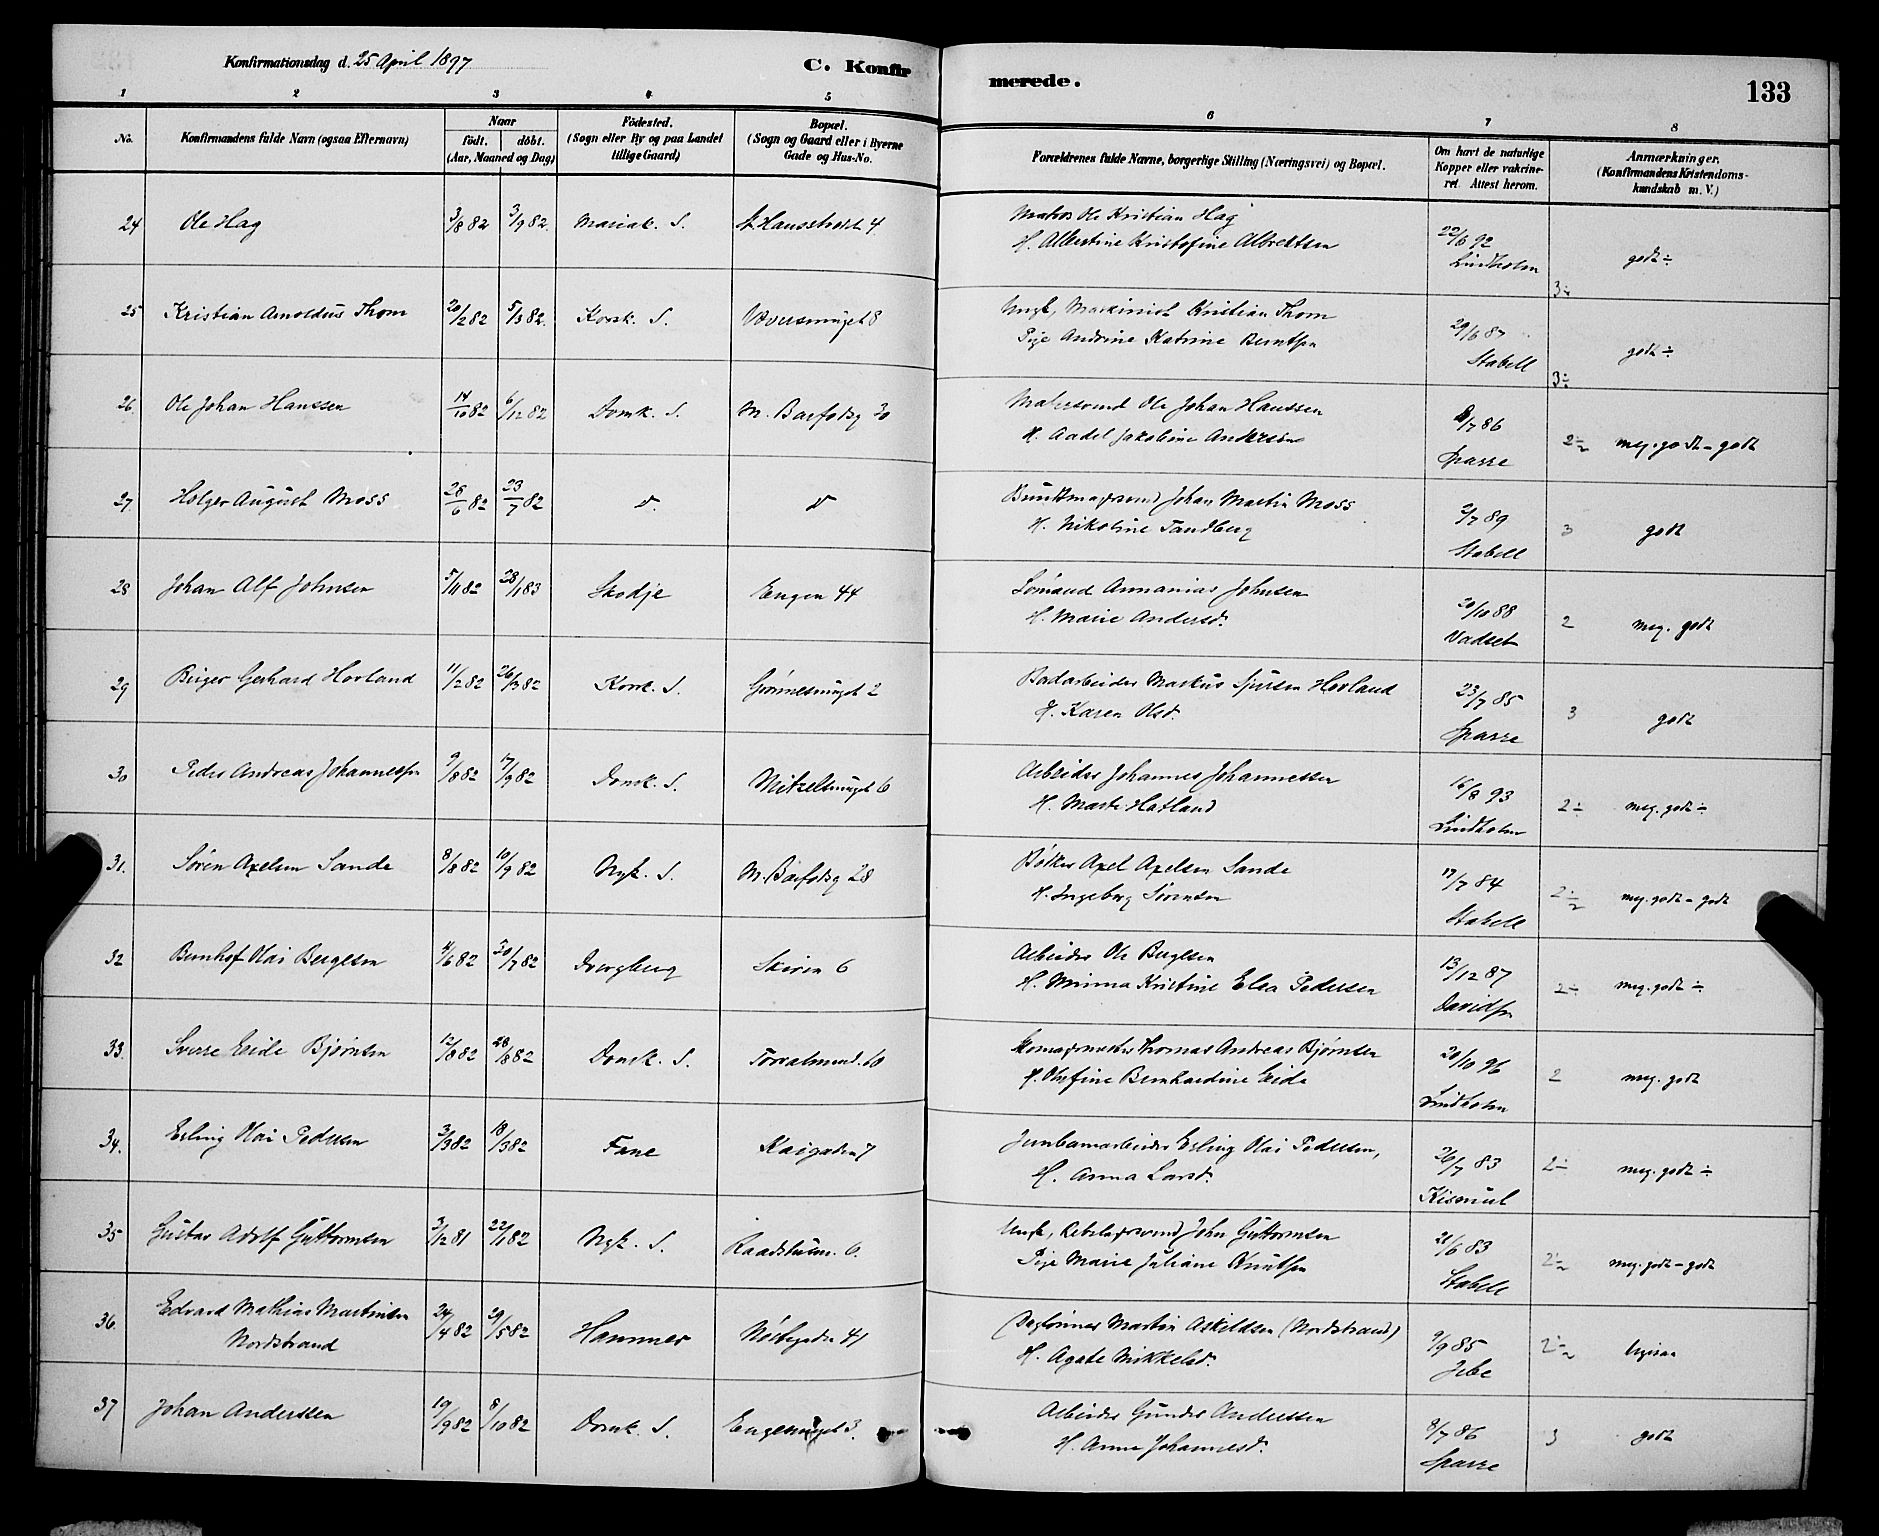 Konfirmationsdag d. 25 April 1897
C. Konfirmerede.
133
1 2 3 4 5 6 7 8
No. Konfirmandens fulde Navn (ogsaa Efternavn) Naar födt. döbt. (Aar, Maaned og Dag) Födested. (Sogn eller By og paa Landet tillige Gaard) Bopæl. (Sogn og Gaard eller i Byerne Gade og Hus-No. Forældrenes fulde Navne, borgerlige Stilling (Næringsvei) og Bopæl. Om havt de naturlige Kopper eller vakcineret Attest herom. Anmærkninger. (Konfirmandens Kristendomskundskab m. V.)
24 Ole Hag 3/8 82 3/9 82. Mariak. S. 4 Matros Ole Kristian Hag 22/6 92
H. Albertine Kristofine Albrektsen Lindholm 3÷ godt ÷
25 Kristian Arnoldus Thom 20/2 82 5/3 82. Korsk. S. Væversmuget 8 Ungk, Maskinist Kristian Thom 29/6 87
Pige Andrine Katrine Berntsn Stabell 3÷ godt ÷
26. Ole Johan Hanssen 14/10 82 6/12 82 Domk. S. M. Barfodsg 30 Malersvend Ole Johan Hanssen 8/7 86
H. Aadel Jakobine Andersen Sparre 2÷2 meg. godt - godt
27. Holger August Moss 28/6 82 23/7 82 d. d Johan Martin Moss 2/7 89
H. Nikoline Tandberg Stabell 3 godt
28 Johan Alf Johnsen 5/11 82 28/1 83 Skodje Engen 44 Sömand Annanias Johnsen 20/10 88
H. Marie Andersd. Vadset 2 meg. godt
29 Birger Gerhard Hovland 11/2 82 26/3 82 Korsk. S. Grönnesmuget 2 Markus Sjursen Hovland 23/7 85
H. Karen Olsd. Sparre 3 godt
30 Peder Andreas Johannessn 9/8 82 17/9 82 Domk. S. Mitzeltsmuget 6 Arbeider Johannes Johannessen 16/8 93
H. Marte Hatland Lindholm 2÷ meg. godt ÷
31. Sören Axelsen Sande 8/8 82 10/9 82 Nyk. S. M. Barfodsg 28 Bödker Axel Axelsen Sande 17/7 84
H. Ingeborg Sörensen Stabell 2÷2 meg. godt - godt
32 Bernhof Olai Bergesen 4/6 82 30/7 82 Dverberg Skiven 6 Arbeider Ole Bergesen 13/12 87
H. Minna Kristine Elea Pedersen Davidsn 2÷ meg. godt ÷
33. Sverre Eide Björnsen 12/8 82 28/8 82 Domk. S. Torvalmend. 60 Skomagermester Thomas Andreas Björnsen 20/10 96
H. Olufine Bernhardine Eide Lindholm 2 meg. godt
34. Erling Olai Pedersen 3/3 82 18/3 82 Fane Kaigaden 7 Jernbanearbeider Erling Olai Pedersen, 26/7 83
H. Anna Larsd. Kismul 2÷ meg. godt ÷
35 Gustav Adolf Guttormsen 3/12 81 22/1 82 Nyk. S. Raadstuen. 6. Ungk, Rebslagersvend John Guttormsen 21/6 83
Pige Marie Juliane Knutsn Stabell 2÷2 meg. godt - godt
36. Edvard Mathias Martinsen 24/4 82 29/5 82 Hammer Nöstegaden 41 Daglönner Martin Askildsen (Nordstrand) 9/9 85
Nordstrand H. Agate Mikkelsd. Jebe 2÷2
37 Johan Anderssen 19/9 82 8/10 82 Domk. S. Engesmuget 3. Arbeider Gunder Anderssen 8/7 86
H. Anne Johannesd. Sparre 3 godt